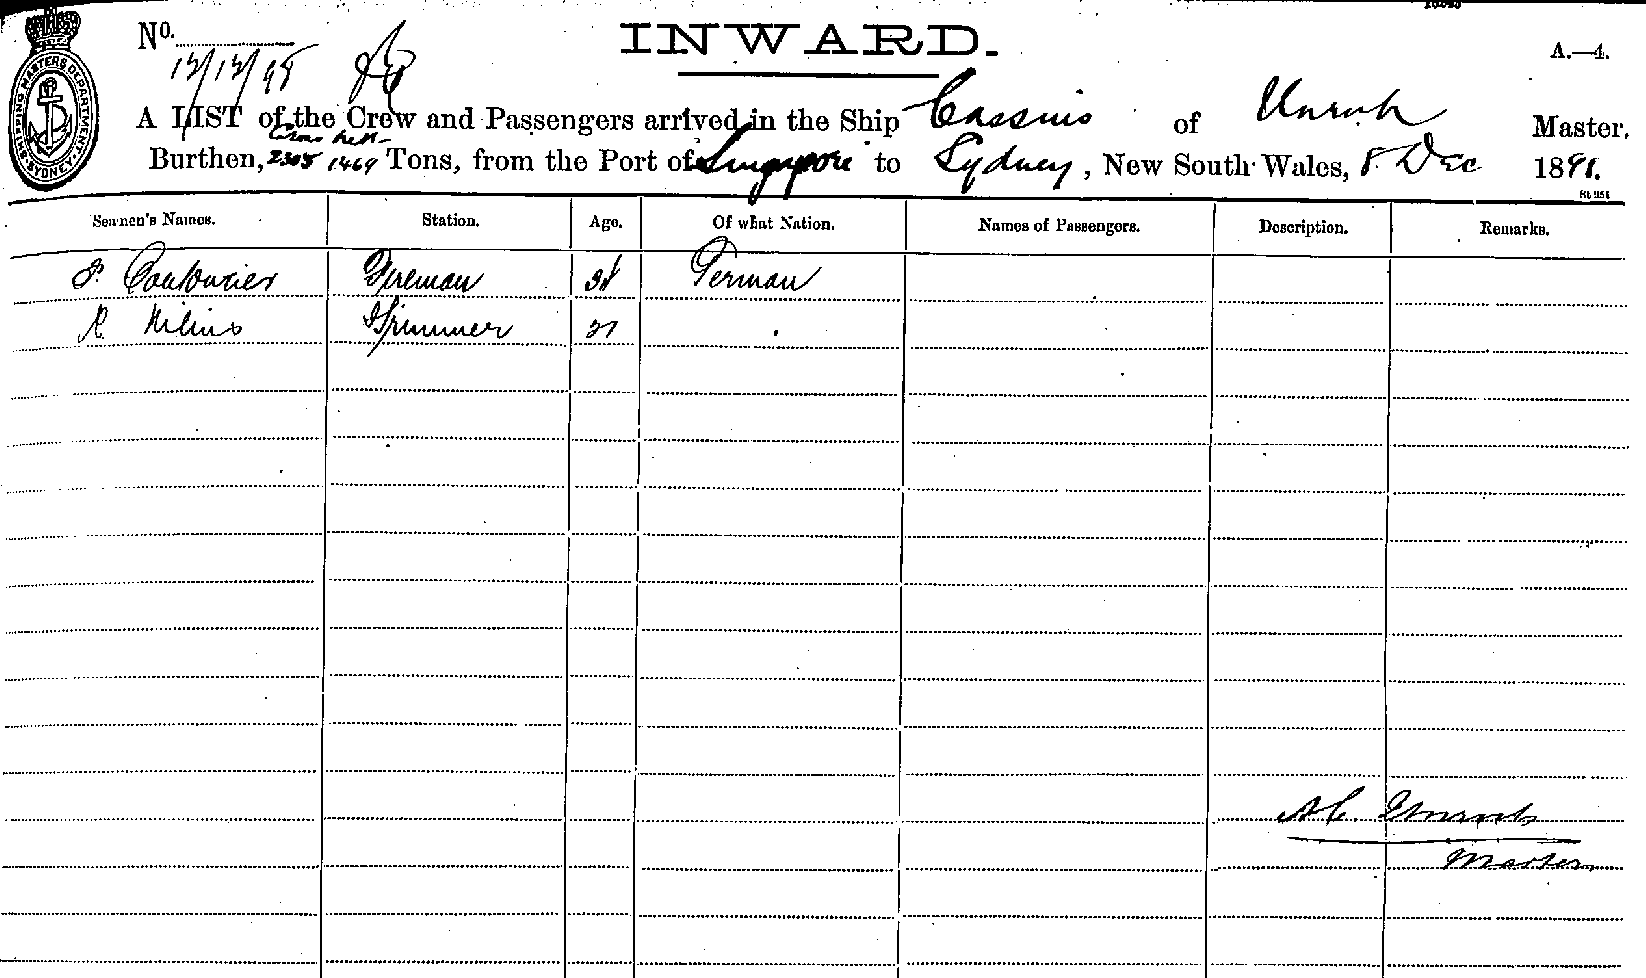 SHIPPING MASTERS DEPARTMENT SYDNEY
No.
INWARD.
A.—4.
A LIST of the Crew and Passengers arrived in the Ship Cassius of Master,
Burthen, 1469 Tons, from the Port of Singapore to Sydney, New South Wales, 8 Dec 189
Seamen's Names. Station. Age. Of what Nation. Names of Passengers. Description. Remarks.
Fireman German
R. Trimmer 27
Master